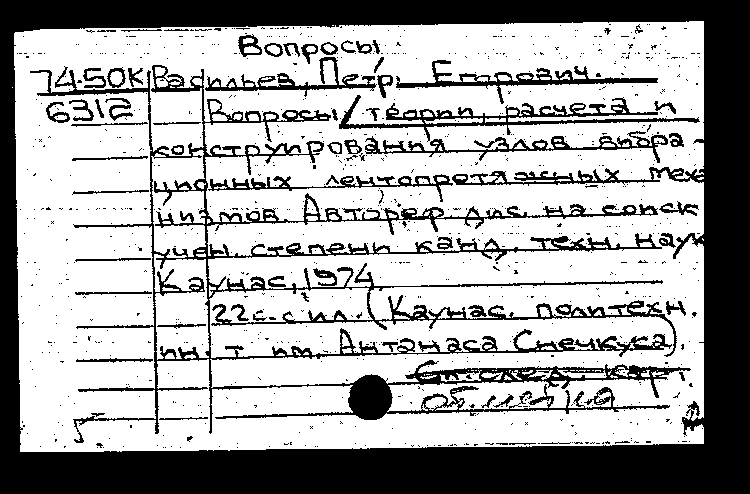 Вопросы
74-50К Васильев, Петр Егорович.
6312 Вопросы / теории, расчета и
конструирования узлов вибра-
ционных лентопротяжных меха
низмов. Автореф дис. на соиск
учен. степени канд. техн. наук
Каунас, 1974.
22с. с ил. (Каунас. политехн.
ин-т им. Антанаса Снечкуса).
См. след. карт.